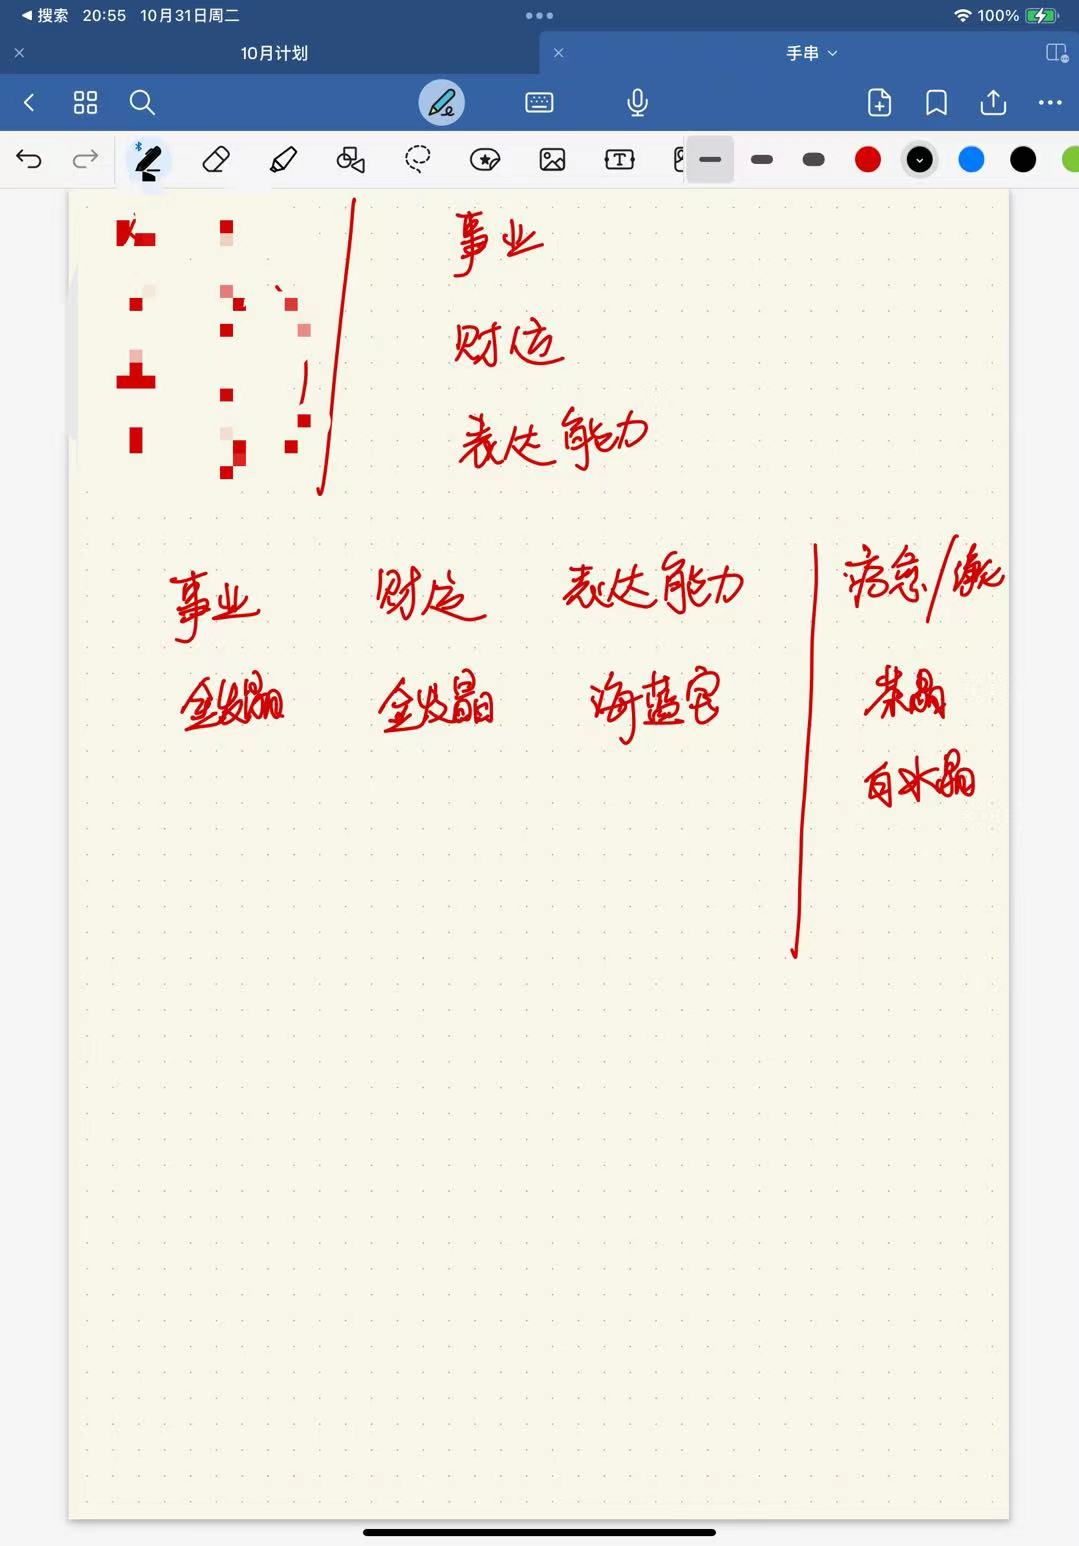 搜索 20:55 10月31日周二 100%
10月计划 手串
事业
财位
表达能力
事业 财位 表达能力
金发晶 金发晶 海蓝宝 茶晶
白水晶